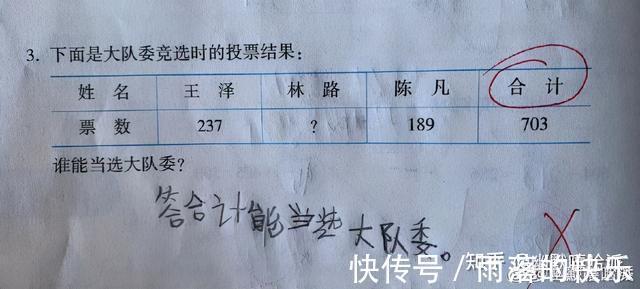 3. 下面是大队委竞选时的投票结果：
姓 名 王 泽 林 路 陈 凡 合 计
票 数 237 ? 189 703
谁能当选大队委？
答合计能当选大队委。
快传号／雨落的快乐